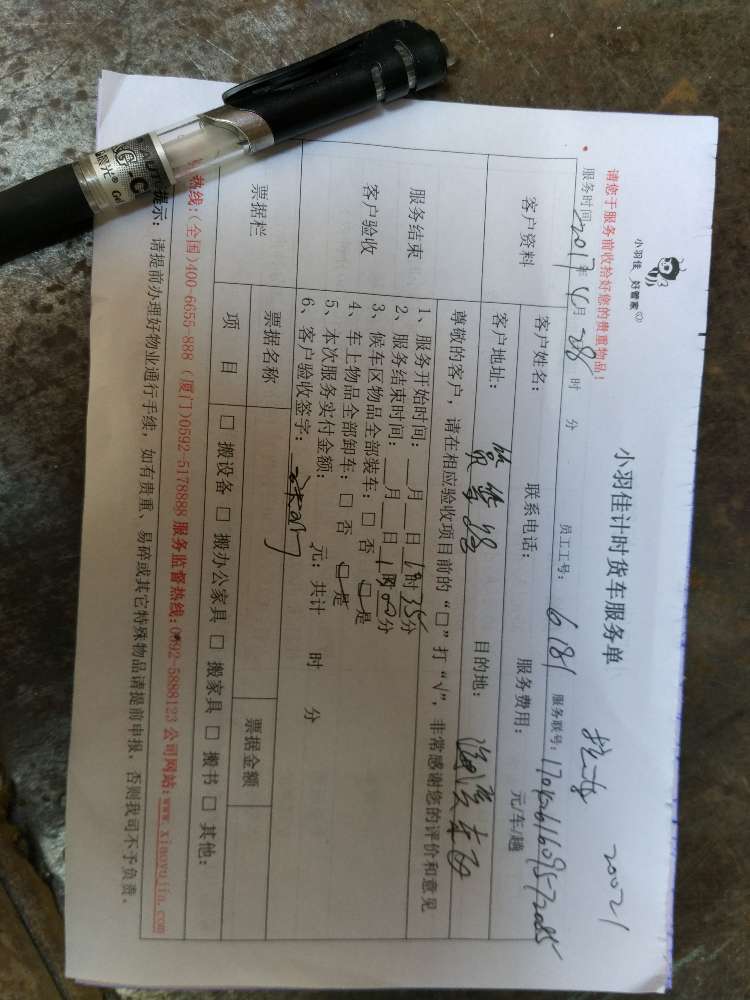 小羽佳 好管家
小羽佳计时货车服务单
20021
请您于服务前收拾好您的贵重物品!
服务时间: 2017年4月28 时 分 员工工号: 6181 服务联号:
客户资料
客户姓名: 联系电话: 服务费用: 元/车/趟
客户地址: 目的地:
服务结束
客户验收
尊敬的客户,请在相应验收项目前的“□”打“√”,非常感谢您的评价和意见
1、服务开始时间: 月 日 时 分
2、服务结束时间: 月 日 时 分
3、候车区物品全部装车:□ 否 □ 是
4、车上物品全部卸车:□ 否 □ 是
5、本次服务实付金额: 元;共计 时 分
6、客户验收签字:
票据栏
票据名称 票据金额
项 目 □ 搬设备 □ 搬办公家具 □ 搬家具 □ 搬书 □ 其他:
热线:(全国)400-6655-888 (厦门)0592-5178888 服务监督热线:0592-5888123 公司网站:www.xiaoyujia.com
提示:请提前办理好物业通行手续,如有贵重、易碎或其它特殊物品请提前申报,否则我司不予负责。